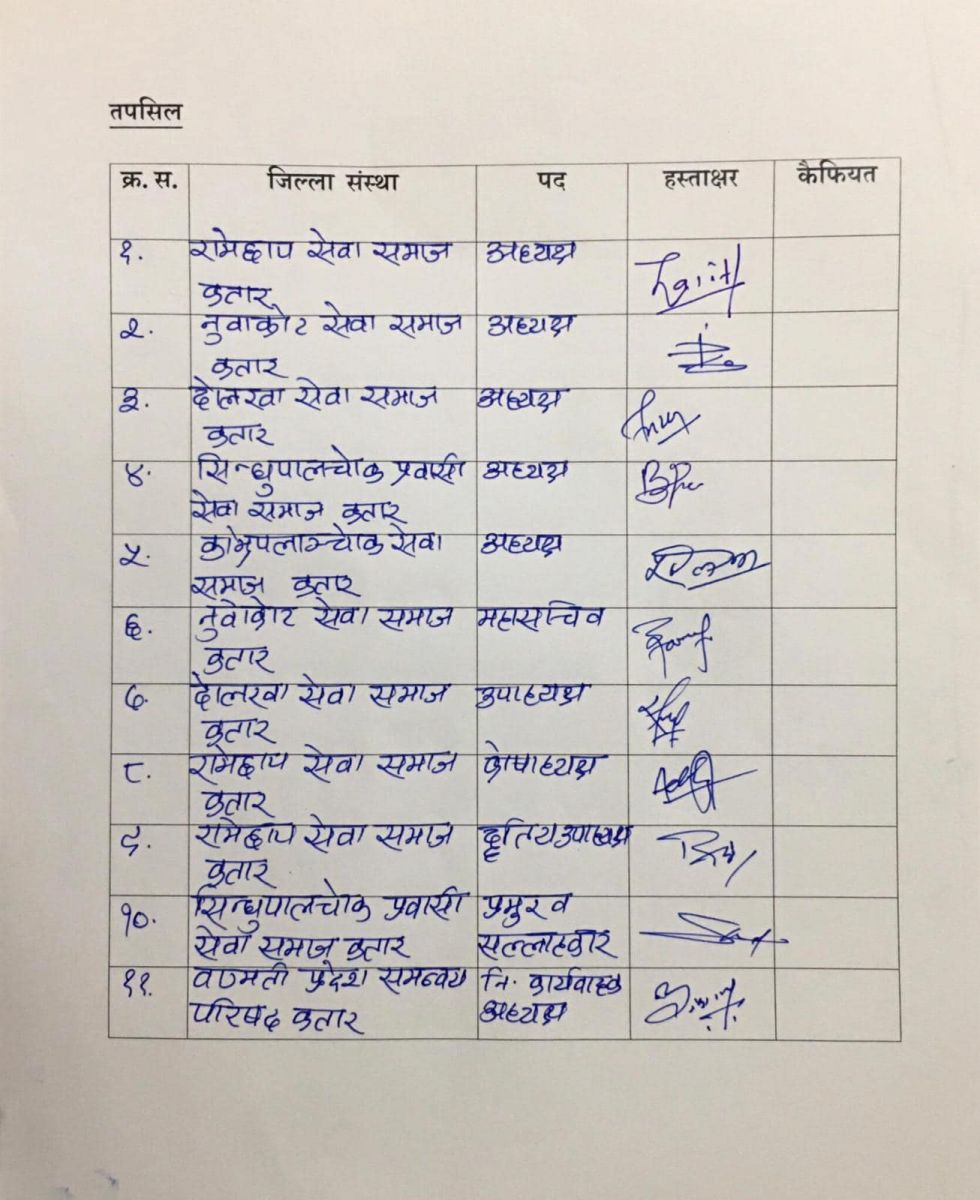 तपसिल
क्र. स. जिल्ला संस्था पद हस्ताक्षर कैफियत
१. रामेछाप सेवा समाज अध्यक्ष
कतार
२. नुवाकोट सेवा समाज अध्यक्ष
कतार
३. दोलखा सेवा समाज अध्यक्ष
कतार
४. सिन्धुपालचोक प्रवासी अध्यक्ष
सेवा समाज कतार
५. काभ्रेपलान्चोक सेवा अध्यक्ष
समाज कतार
६. नुवाकोट सेवा समाज महासचिव
कतार
७. दोलखा सेवा समाज उपाध्यक्ष
कतार
८. रामेछाप सेवा समाज कोषाध्यक्ष
कतार
९. रामेछाप सेवा समाज दृतिय उपाध्यक्ष
कतार
१०. सिन्धुपालचोक प्रवासी प्रमुख
सेवा समाज कतार सल्लाहकार
११. वाग्मती प्रदेश समन्वय नि. कार्यवाहक
परिषद कतार अध्यक्ष